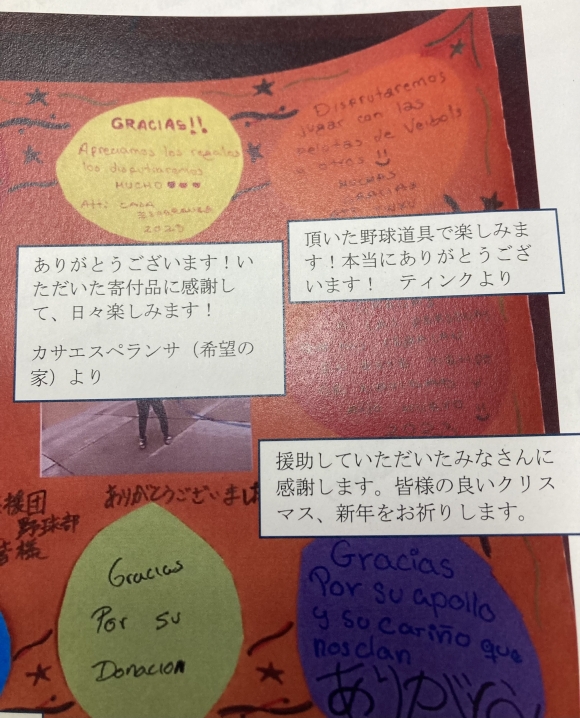 GRACIAS!!
Apreciamos los regalos
los disputaremos
MUCHO
Att: CASA
ESPERANZA
2023
Disfrutaremos
jugar con las
pelotas de Veibols
y otros !!
MUCHAS
頂いた野球道具で楽しみま
す！本当にありがとうござ
います！　ティンクより
ありがとうございます！い
ただいた寄付品に感謝し
て、日々楽しみます！
カサエスペランサ（希望の
家）より
援助していただいたみなさんに
感謝します。皆様の良いクリス
マス、新年をお祈りします。
援団
野球部
皆様
ありがとうございまし
Gracias
Por su
Donacion
Gracias
Por su apollo
y su cariño que
nos dan
ありがとう